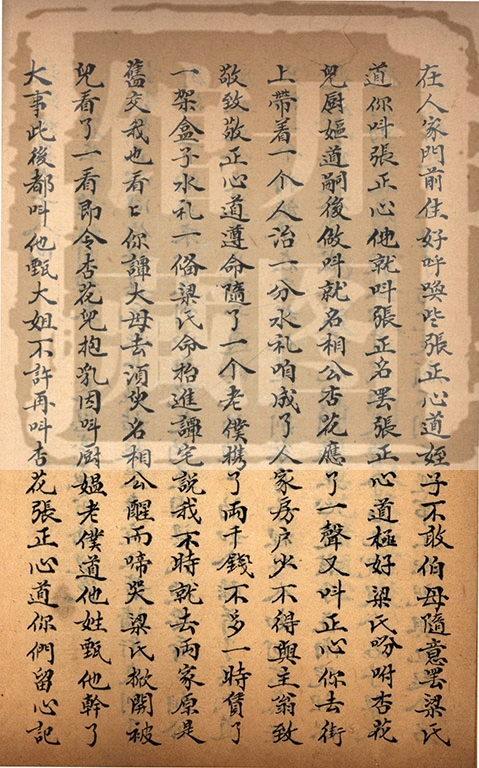 在人家門前住好呼喚些張正心道姪子不敢伯母隨意罷梁氏
道你叫張正心他就叫張正名罷張正心道極好梁氏吩咐杏花
兒厨嫗道嗣後做叫就名相公杏花應了一聲又叫正心你去街
上帶着一个人治一分水礼咱成了人家房戶少不得與主翁致
敬致敬正心道遵命隨了一个老僕携了両千錢不多一時賃了
一架盒子水礼一俻梁氏命抬進譚宅說我不時就去両家原是
舊交我也看看你譚大母去湏臾名相公醒而啼哭梁氏掀開被
兒看了一看即令杏花兒抱乳因叫厨媼老僕道他姓甄他幹了
大事此後都叫他甄大姐不許再叫杏花張正心道你們留心記